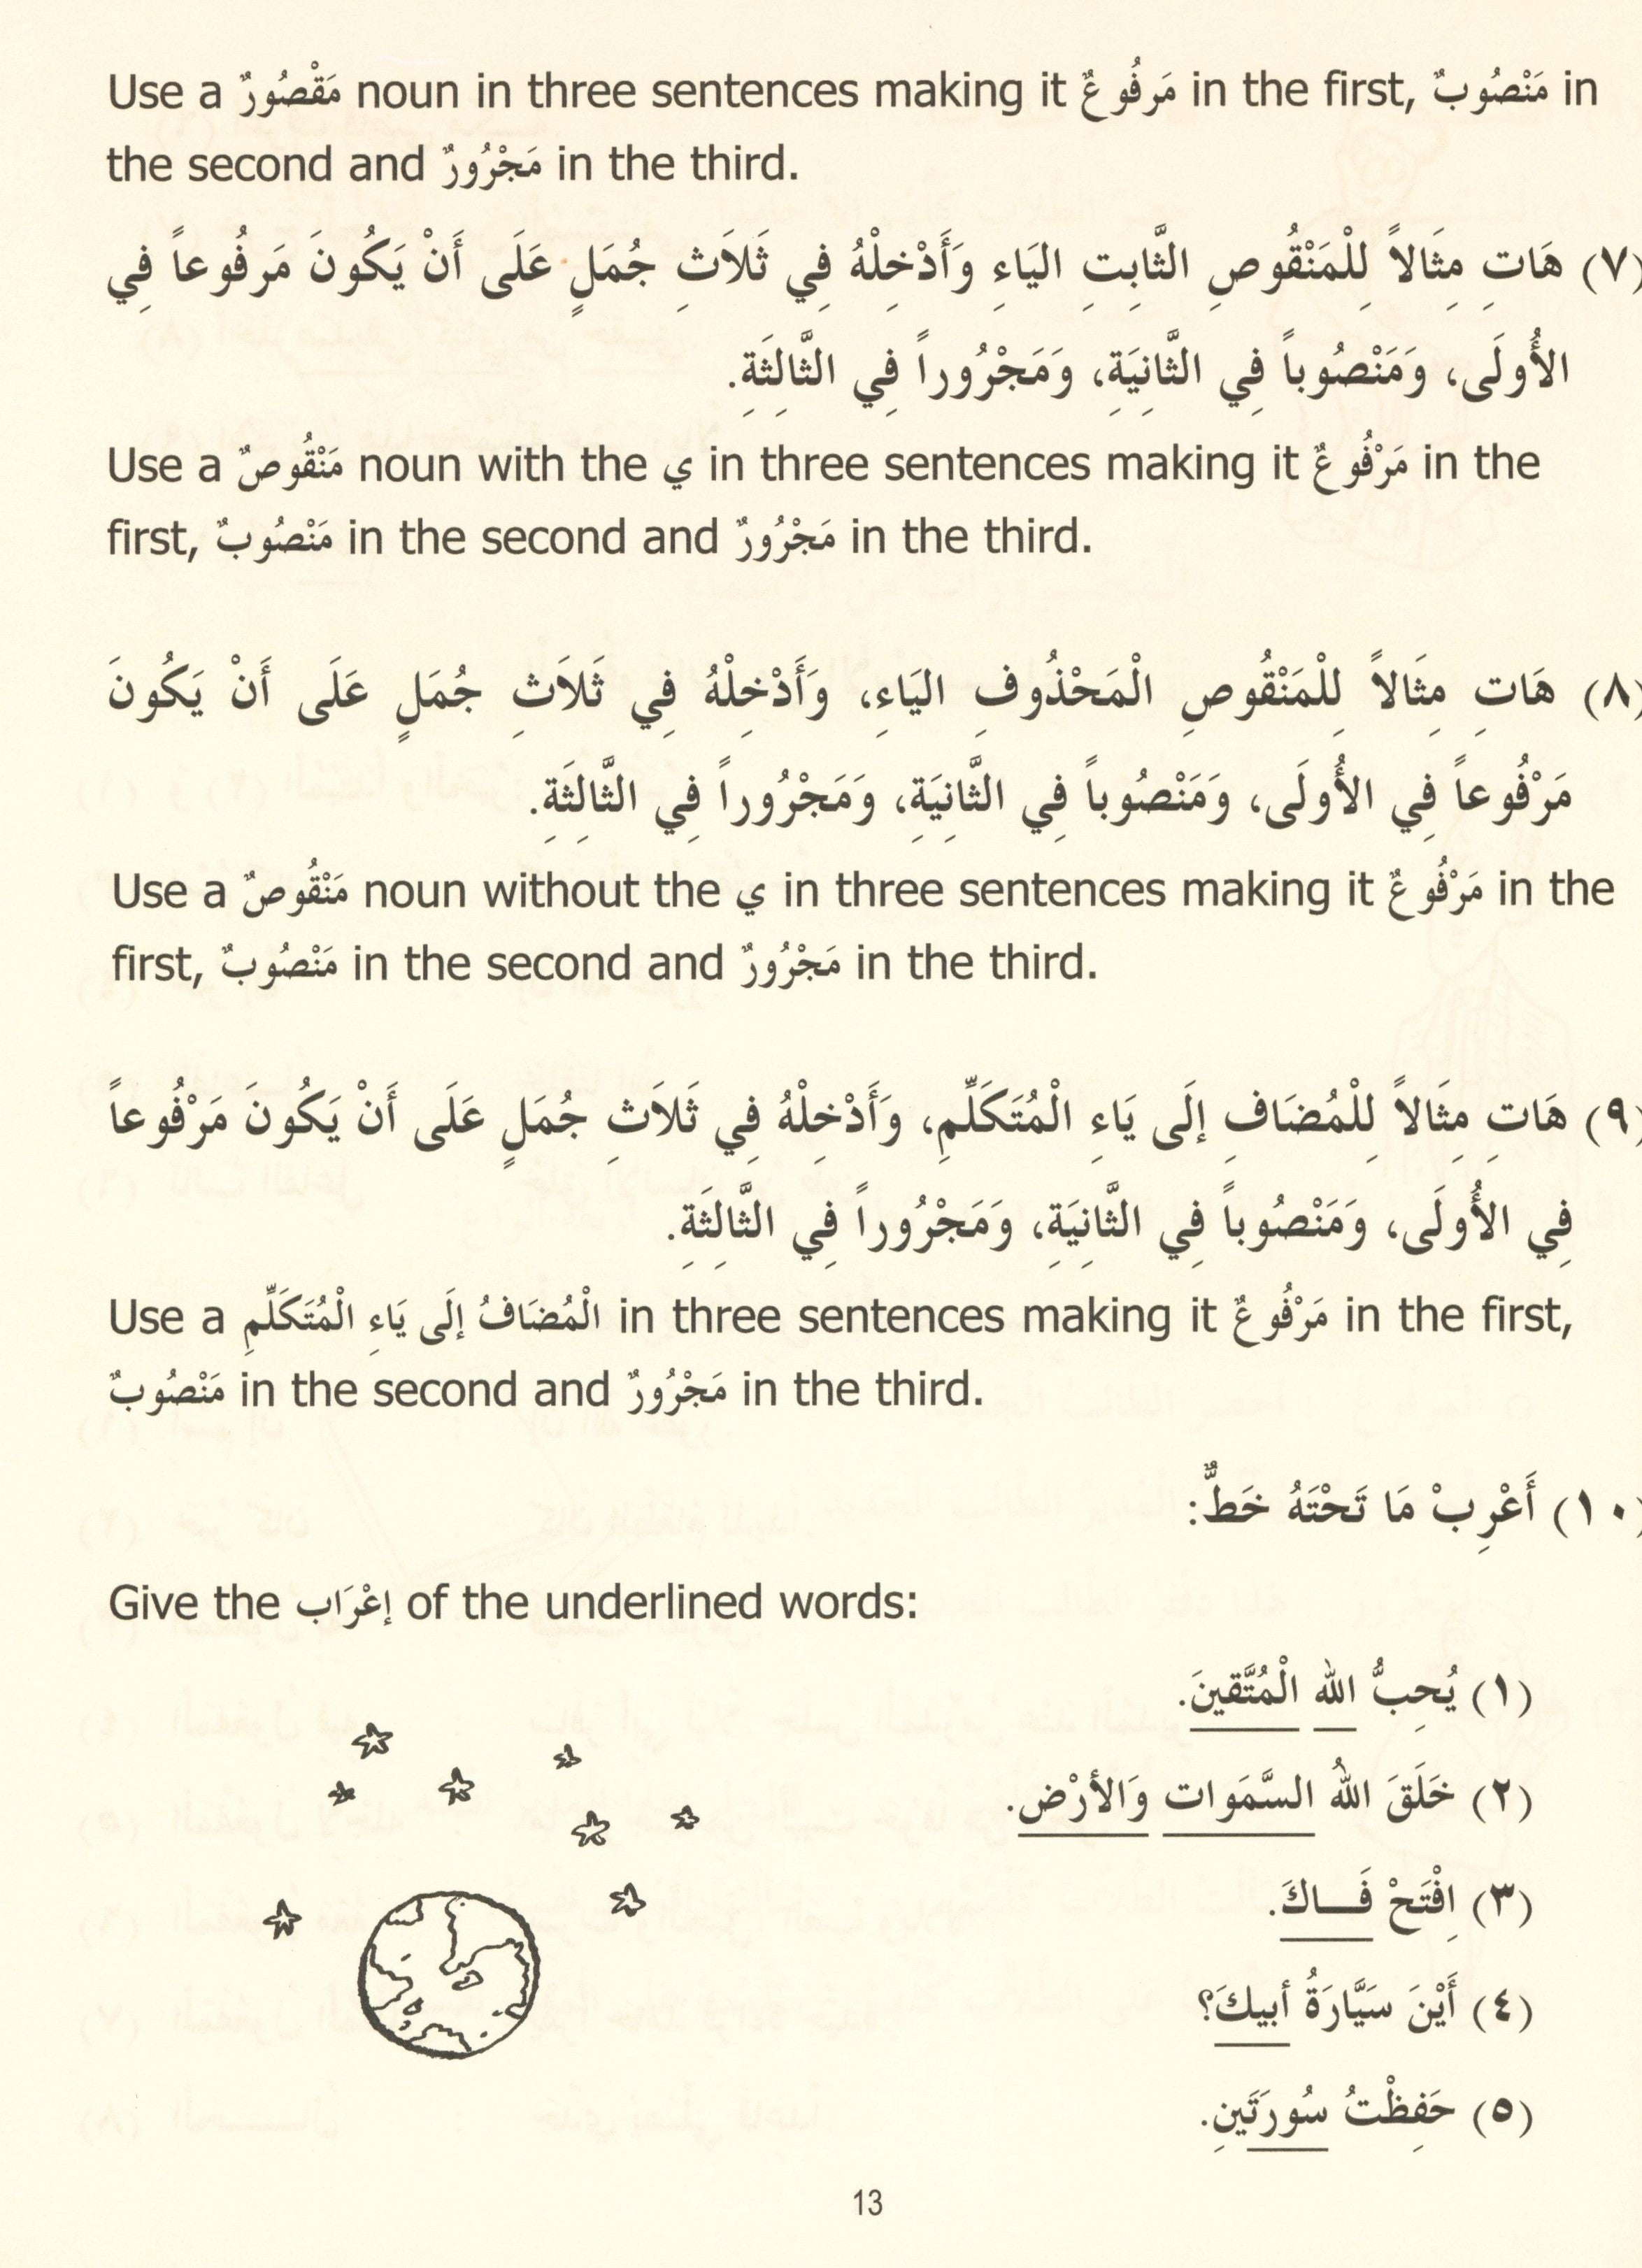 Use a مَقْصُورٌ noun in three sentences making it مَرفُوعٌ in the first, مَنْصُوبٌ in
the second and مَجْرُورٌ in the third.
(٧) هَاتِ مِثَالاً لِلْمَنْقُوصِ الثَّابِتِ اليَاءِ وَأَدْخِلْهُ فِي ثَلاَثِ جُمَلٍ عَلَى أَنْ يَكُونَ مَرفُوعاً فِي
الأُولَى، وَمَنْصُوباً فِي الثَّانِيَةِ، وَمَجْرُوراً فِي الثَّالِثَةِ.
Use a مَنْقُوصٌ noun with the ي in three sentences making it مَرْفُوعٌ in the
first, مَنْصُوبٌ in the second and مَجْرُورٌ in the third.
(٨) هَاتِ مِثَالاً لِلْمَنْقُوصِ الْمَحْذُوفِ اليَاءِ، وَأَدْخِلْهُ فِي ثَلاَثِ جُمَلٍ عَلَى أَنْ يَكُونَ
مَرْفُوعاً فِي الأُولَى، وَمَنْصُوباً فِي الثَّانِيَةِ، وَمَجْرُوراً فِي الثَّالِثَةِ.
Use a مَنْقُوصٌ noun without the ي in three sentences making it مَرْفُوعٌ in the
first, مَنْصُوبٌ in the second and مَجْرُورٌ in the third.
(٩) هَاتِ مِثَالاً لِلْمُضَافِ إلَى يَاءِ الْمُتَكَلِّمِ، وَأَدْخِلْهُ فِي ثَلاَثِ جُمَلٍ عَلَى أَنْ يَكُونَ مَرْفُوعاً
فِي الأُولَى، وَمَنْصُوباً فِي الثَّانِيَةِ، وَمَجْرُوراً فِي الثَّالِثَةِ.
Use a الْمُضَافُ إلَى يَاءِ الْمُتَكَلِّمِ in three sentences making it مَرْفُوعٌ in the first,
مَنْصُوبٌ in the second and مَجْرُورٌ in the third.
(١٠) أَعْرِبْ مَا تَحْتَهُ خَطٌّ:
Give the إعْرَاب of the underlined words:
(١) يُحِبُّ الله الْمُتَّقينَ.
(٢) خَلَقَ اللهُ السَّمَوات وَالأرْض.
(٣) اِفْتَحْ فَـــاكَ.
(٤) أَيْنَ سَيَّارَةُ أبيكَ؟
(٥) حَفِظْتُ سُورَتَينِ.
13